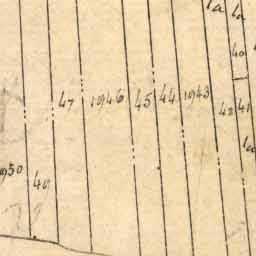 1a
1a
40
47
1946
45
44
1943
42
41
1950
40